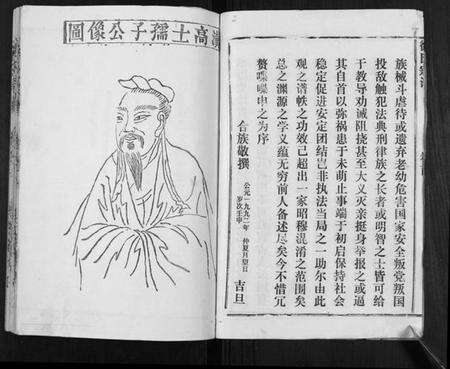 高士孺子公像圖
族械斗虐待或遗弃老幼危害国家安全叛党叛国
投敌触犯法典刑律族之长者或明智之士皆可给
于教导劝诫阻挠甚至大义灭亲挺身举报之或逼
其自首以弥祸患于未萌止事端于初启保持社会
稳定促进安定团结岂非执法当局之一助尔由此
观之谱帙之功效已超出一家昭穆混淆之范围矣
总之渊源之学义蕴无穷前人备述尽矣今不惜冗
赘喋喋申之为序
合族敬撰
公元一九九二年 仲夏月望日
岁次壬申
吉旦